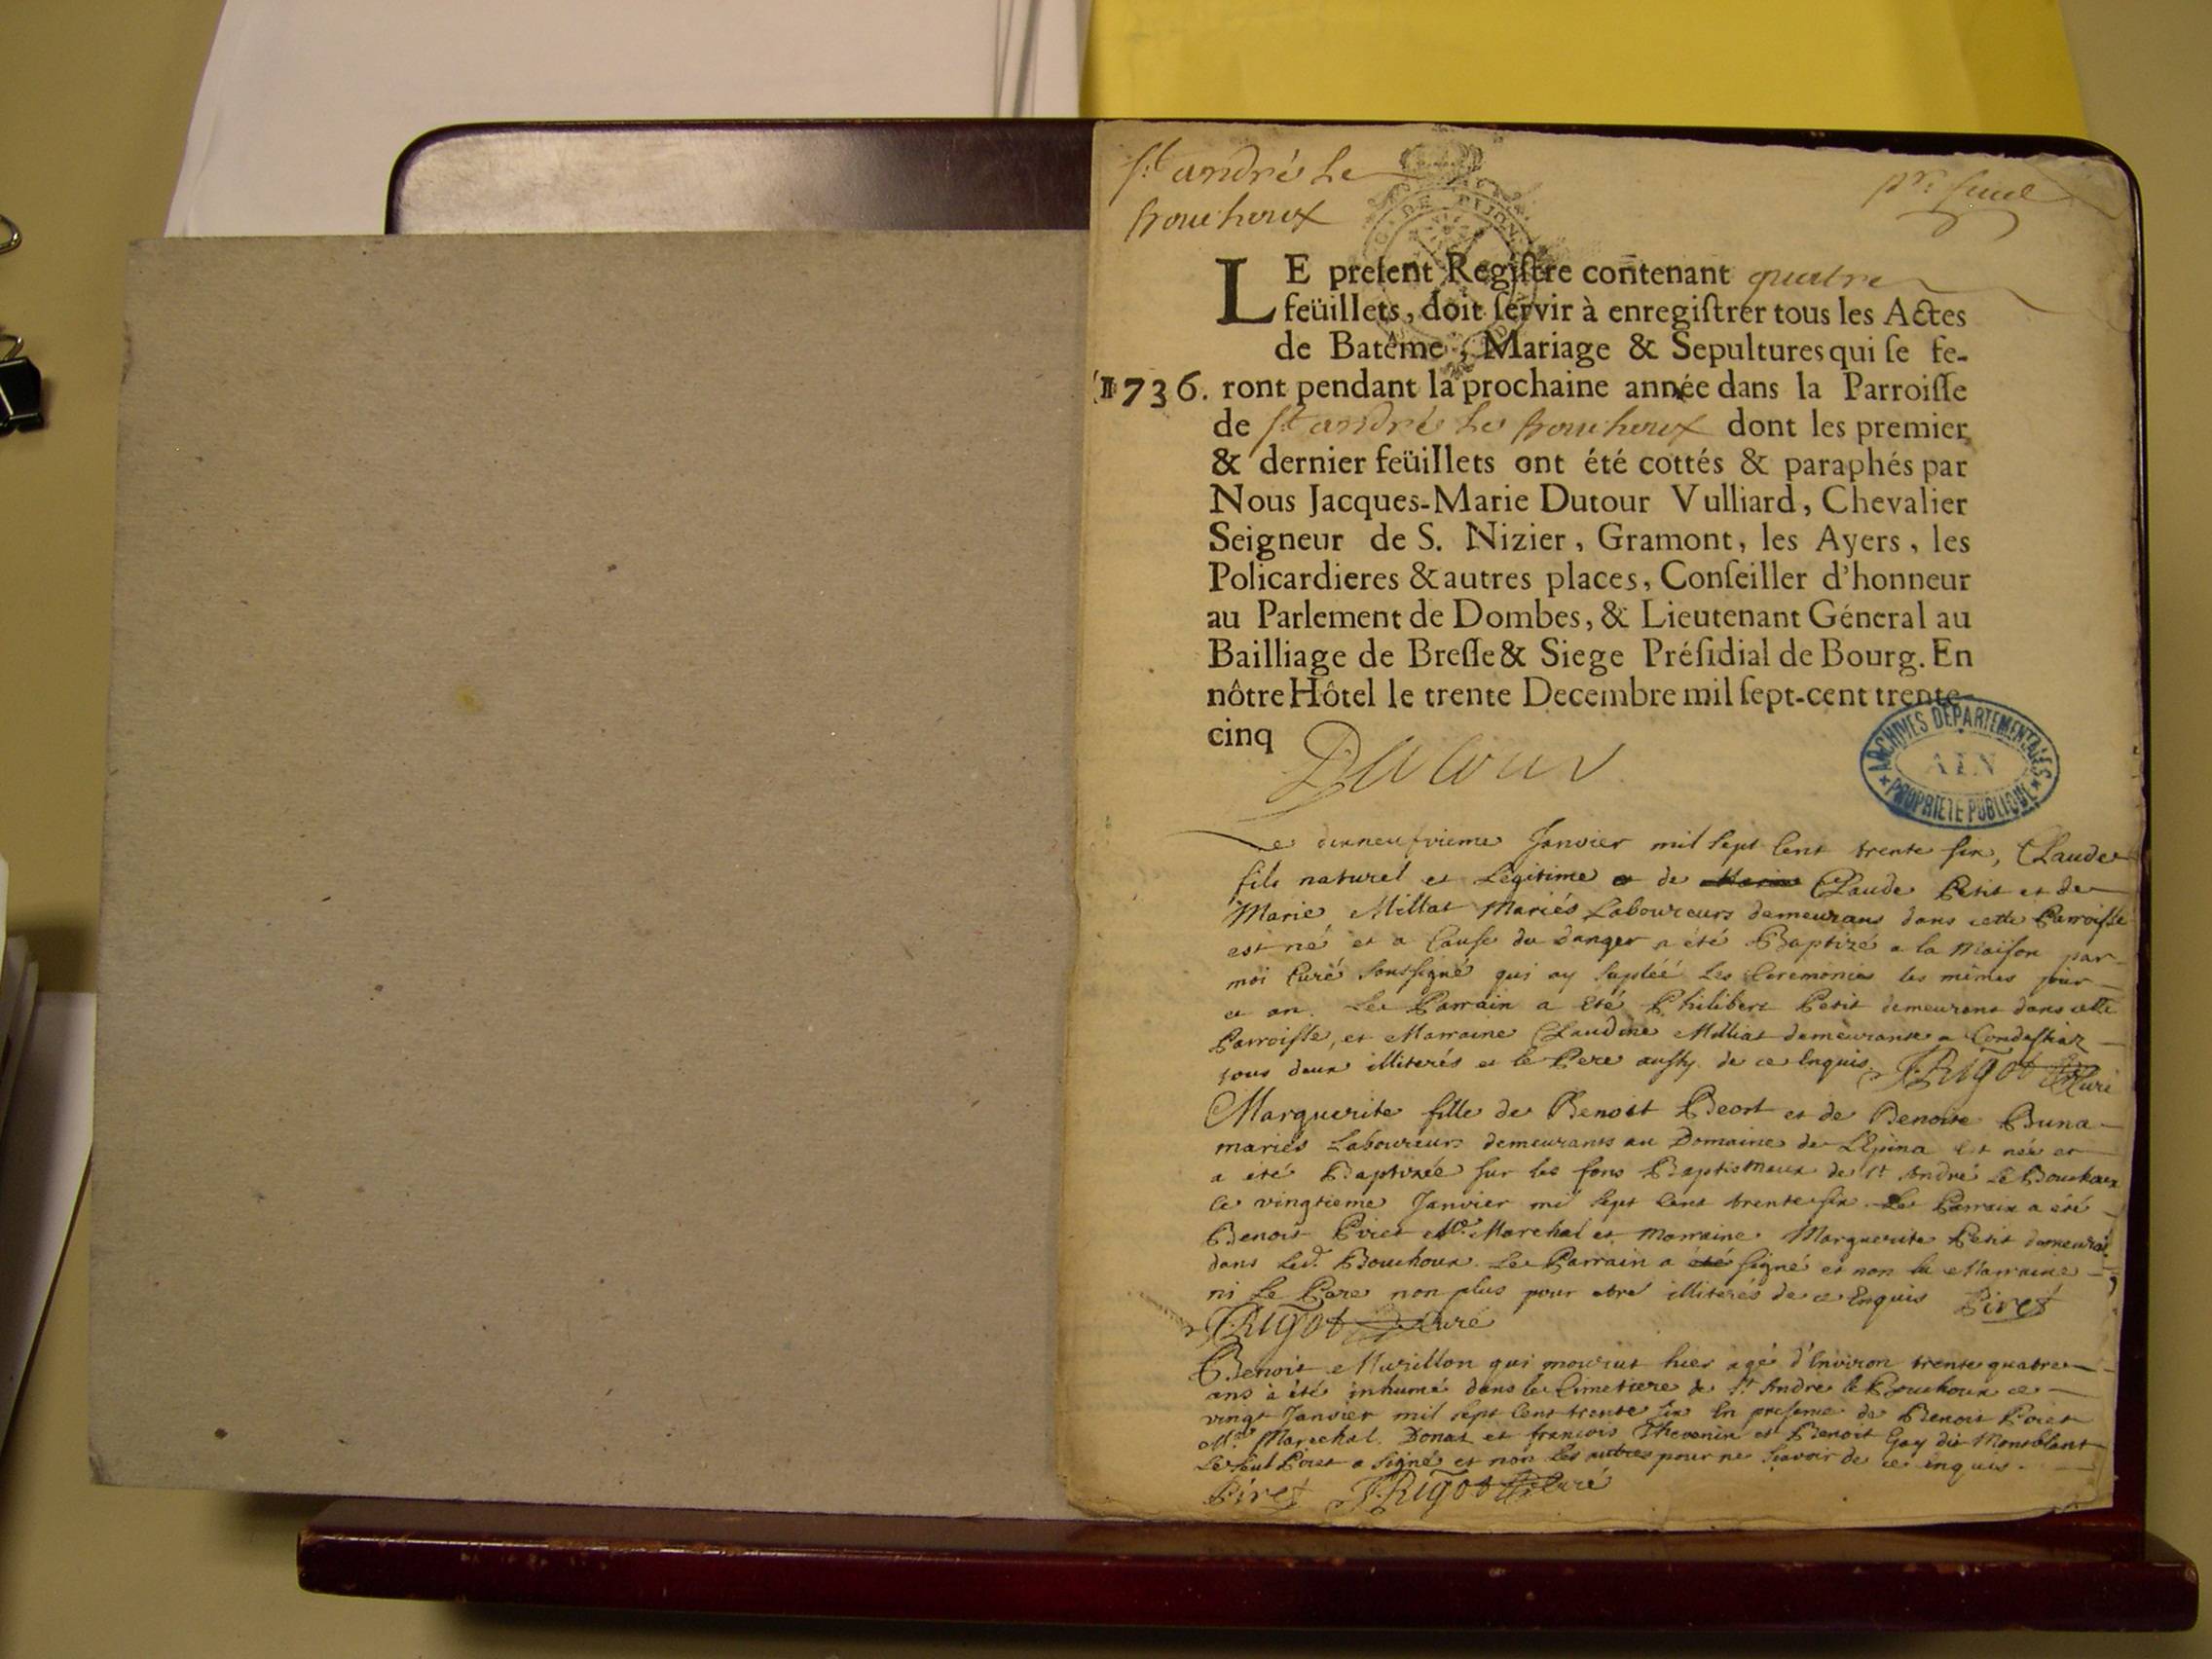 St andré le
bouchoux
LE present Regiſtre contenant quatre
feüillets, doit ſervir à enregiſtrer tous les Actes
de Batême, Mariage & Sepultures qui ſe fe-
1736. ront pendant la prochaine année dans la Parroiſſe
de St andré le bouchoux dont les premier
& dernier feüillets ont été cottés & paraphés par
Nous Jacques-Marie Dutour Vulliard, Chevalier
Seigneur de S. Nizier, Gramont, les Ayers, les
Policardieres & autres places, Conſeiller d'honneur
au Parlement de Dombes, & Lieutenant Géneral au
Bailliage de Breſſe & Siege Préſidial de Bourg. En
nôtre Hôtel le trente Decembre mil ſept-cent trente-
cinq
Dutour
ARCHIVES DÉPARTEMENTALES
AIN
PROPRIETE PUBLIQUE
Le dixneufvieme Janvier mil sept Cent trente six, Claude
fils naturel et Légitime de Claude Petit et de
Marie Millat Mariés Laboureurs demeurans dans cette Parroisse
est né et a Cause du danger a été Baptizé a la Maison par
moi Curé soussigné qui ay supléé les Ceremonies les mêmes jour
et an. Le Parrain a été Philibert Petit demeurant dans cette
Parroisse, et Marraine Claudine Milliat demeurante a Condessiaz
tous deux illiterés et le Pere aussy de ce Enquis. J. Rigot Curé
Marguerite fille de Benoit Beort et de Benoite Buna
mariés Laboureurs demeurants au Domaine de L'Epina est née et
a été Baptizée sur les fons Baptismaux de St André le Bouchoux
le vingtieme Janvier mil sept Cent trente six. Le Parrain a été
Benoit Piret Me Marechal et Marraine Marguerite Petit demeurat
dans led. Bouchoux. Le Parrain a été signé et non la Marraine
ni le Pere non plus pour etre illiterés de ce Enquis Piret
J. Rigot Curé
Benoit Murillon qui mourut hier agé d'Environ trente quatre
ans à été inhumé dans le Cimetiere de St André le Bouchoux ce
vingt Janvier mil sept Cent trente six En presence de Benoit Piret
Me Marechal. Donat et francois Thevenin et Benoit Gay dit Montblant
Le seul Piret a signé et non les autres pour ne Scavoir de ce enquis.
Piret J. Rigot Curé